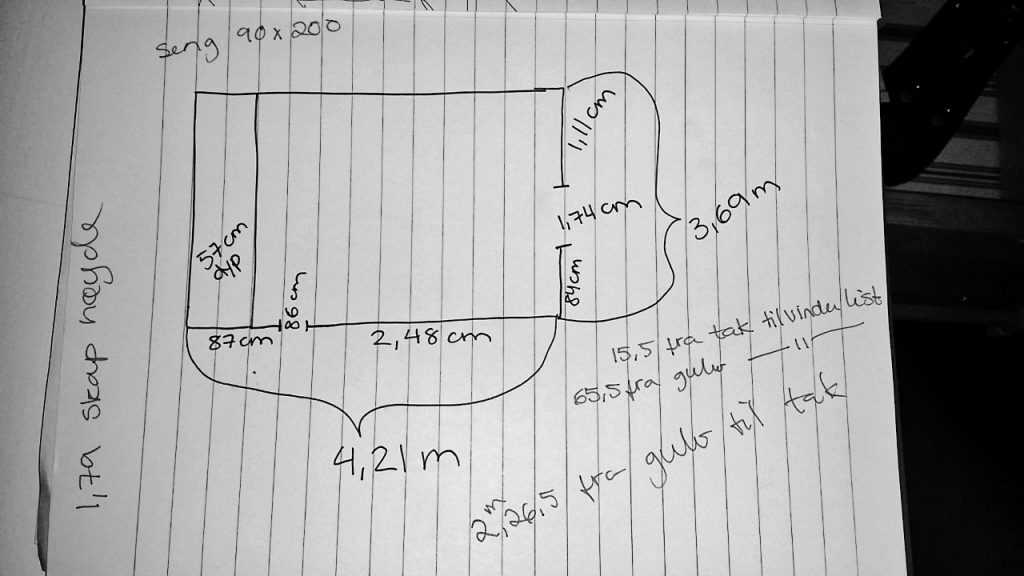 seng 90 x 200
1,11 cm
1,74 cm
3,69 m
57 cm
dyp
84cm
86 cm
87cm
2,48 cm
4,21 m
15,5 fra tak til vindu list
65,5 fra gulv — 11 —
2 m, 26,5 fra gulv til tak
1,79 skap høyde